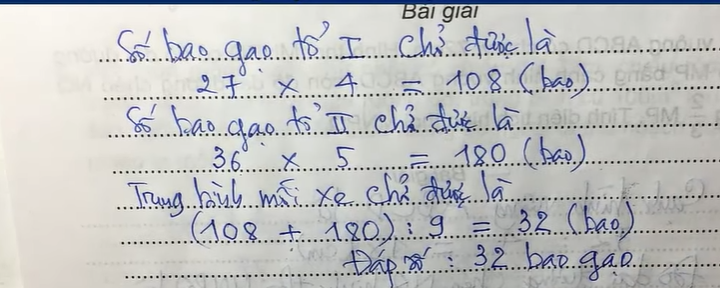 Bài giải
Số bao gạo tổ I chở được là
27 × 4 = 108 (bao)
Số bao gạo tổ II chở được là
36 × 5 = 180 (bao)
Trung bình mỗi xe chở được là
(108 + 180) : 9 = 32 (bao)
Đáp số : 32 bao gạo